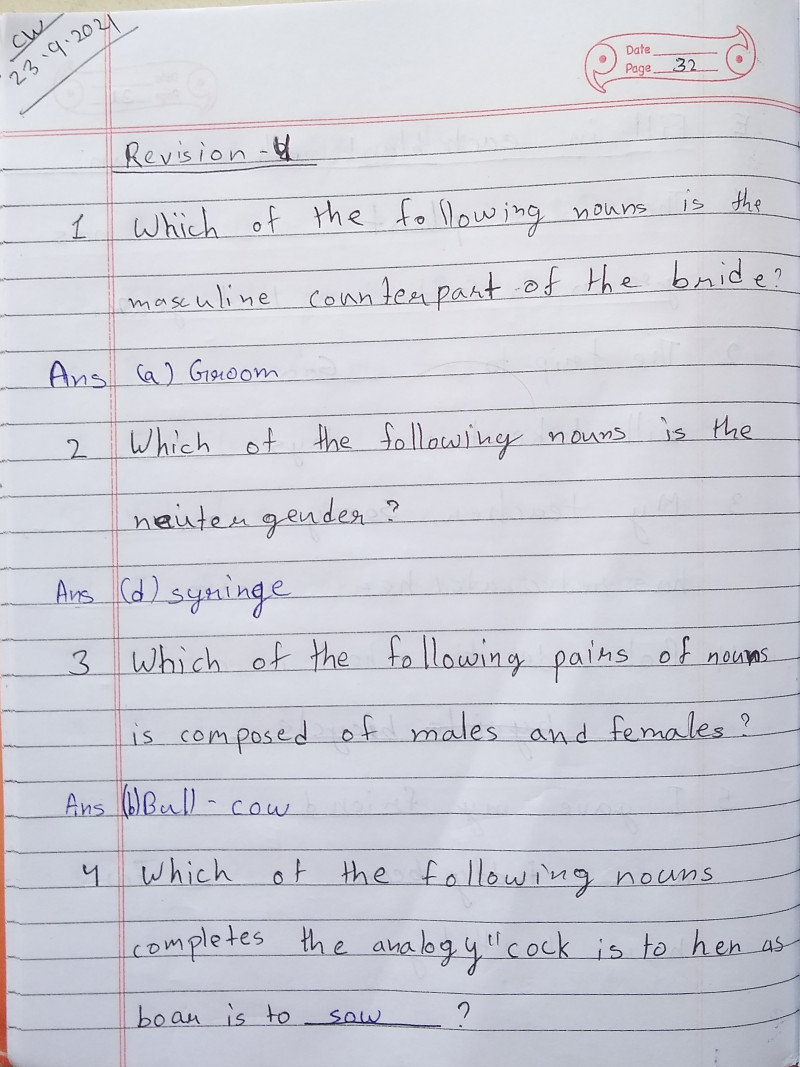 CW
23.9.2021
Date
Page 32
Revision - 4
1 Which of the following nouns is the
masculine counterpart of the bride?
Ans (a) Groom
2 Which of the following nouns is the
neuter gender?
Ans (d) syringe
3 Which of the following pairs of nouns
is composed of males and females?
Ans (b) Bull - cow
4 Which of the following nouns
completes the analogy "cock is to hen as
boar is to sow ?